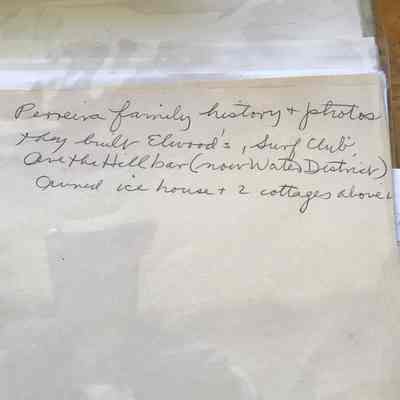 Perreira family history + photos
they built Elwood's, Surf Club,
Over the Hill bar (now Water District)
Owned ice house + 2 cottages above